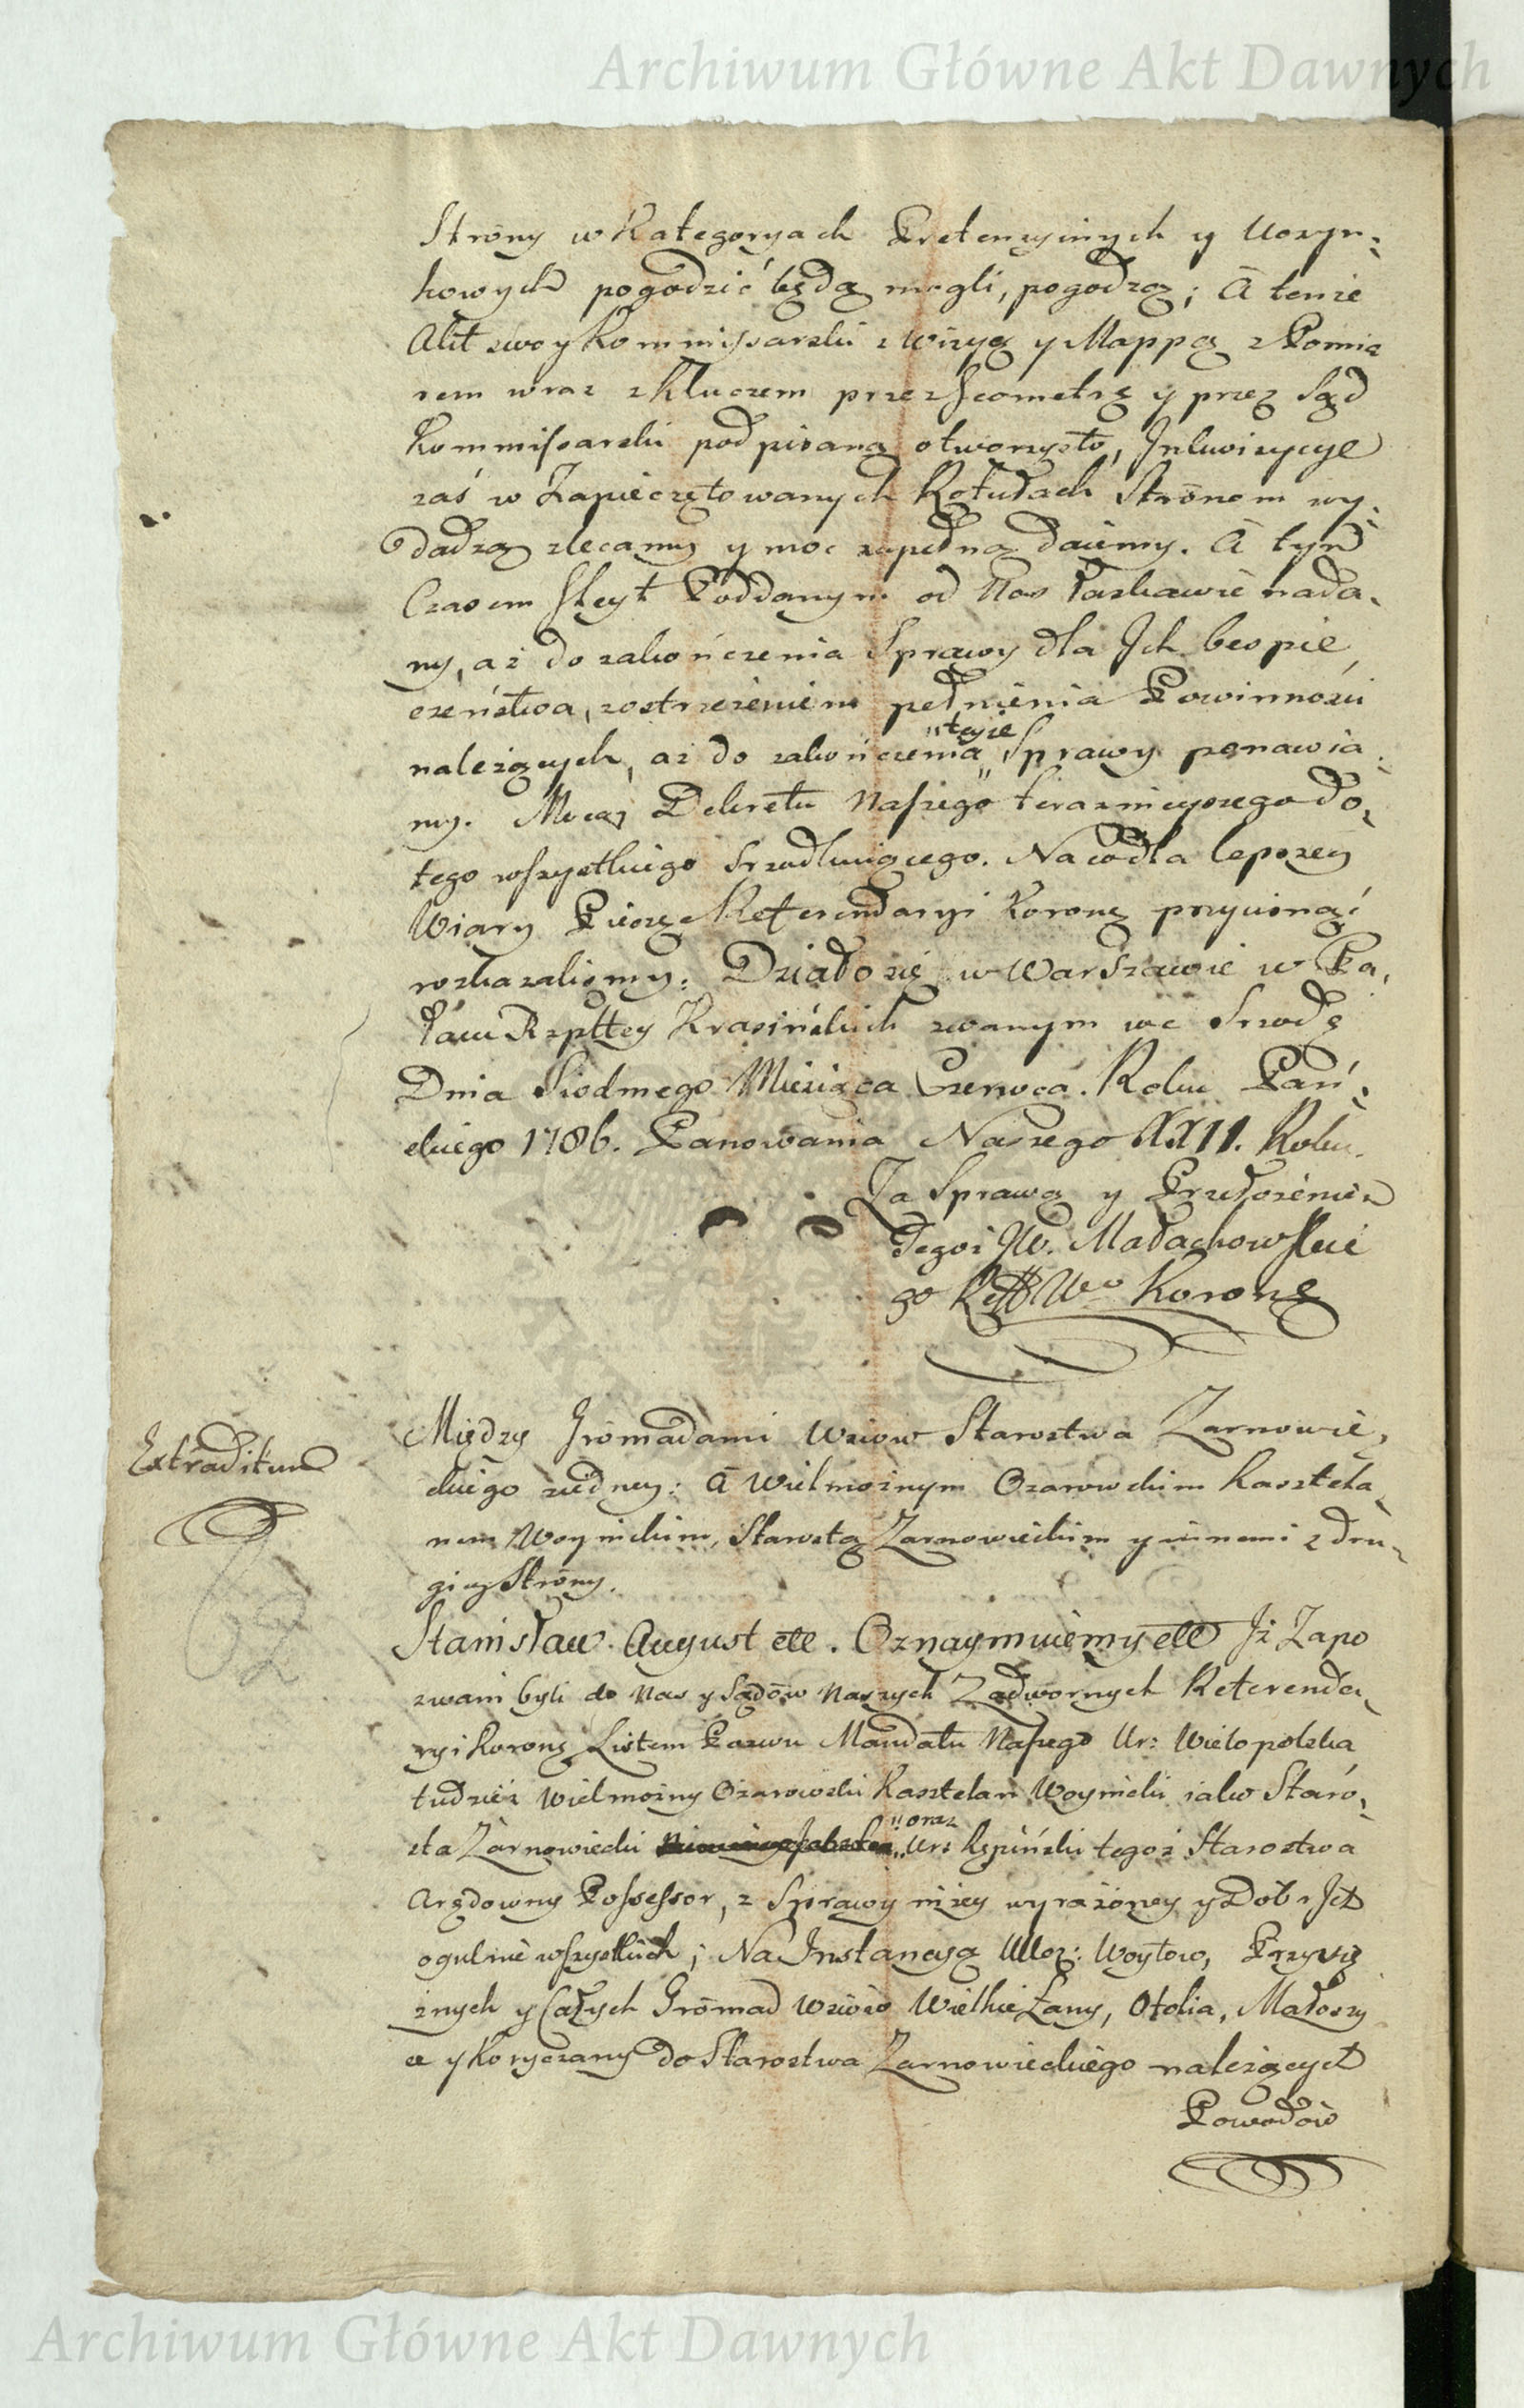 Archiwum Główne Akt Dawnych
Strony w Kategoryach Pretensyinych y Uczyn:
kowych pogodzić będą mogli, pogodzą; A tenże
Akt swoy Kommissarski z Wizyą y Mappą z Pomia
rem wraz z Kluczem przez Jeometrę y przez Sąd
Kommissarski podpisaną otworzysto, Inkwizycye
zaś w Zapieczętowanych Rotułach Stronom wy:
dadzą zlecamy y moc zupełną daiemy. A tym
Czasem Gleyt Poddanym od Nas łaskawie nada,
ny, aż do zakończenia Sprawy dla Ich bespie,
czeństwa, zostrzeżeniem pełnienia Powinności
należących, aż do zakończenia "teyże" Sprawy ponawia:
my. Mocą Dekretu Naszego teraznieyszego do,
tego wszystkiego srzodkuiącego. Na co dla lepszey
Wiary Pieczęć Referendaryi Koronę przycisnąć
rozkazaliśmy. Działo się w Warszawie w Pa,
łacu Rzpltey Krasińskich zwanym we Srzodę
Dnia Siodmego Miesiąca Czerwca. Roku Pań:
skiego 1786. Panowania Naszego XXII. Roku.
Za Sprawą y Przełożeniem
Tegoż JW. Małachowskie
go Reff Wo Koronę
Extraditum
Między Gromadami Wsiow Starostwa Zarnowie,
ckiego z iedney: A Wielmożnym Ożarowskim Kasztela,
nem Woynickim, Starostą Zarnowieckim y innemi z dru,
giey Strony.
Stanisław August etc. Oznaymuiemy etc Iż Zapo
zwani byli do Nas y Sądów Naszych Zadwornych Referenda,
ryi Koronę Listem Pozwu Mandatu Naszego Ur: Wielopolska
tudzież Wielmożny Ożarowski Kasztelan Woynicki iako Staro,
sta Zarnowiecki "oraz" Ur: Kępiński tegoż Starostwa
Arędowny Possessor, z Sprawy niżey wyrażoney y Dobr Ich
ogulnie wszystkich; Na Instancyą Uczc: Woytow, Przysię
żnych y Całych Gromad Wsiów Wielkie Łany, Otolia, Małoszy
ce y Koryczany do Starostwa Zarnowieckiego należących
Powodow
Archiwum Główne Akt Dawnych